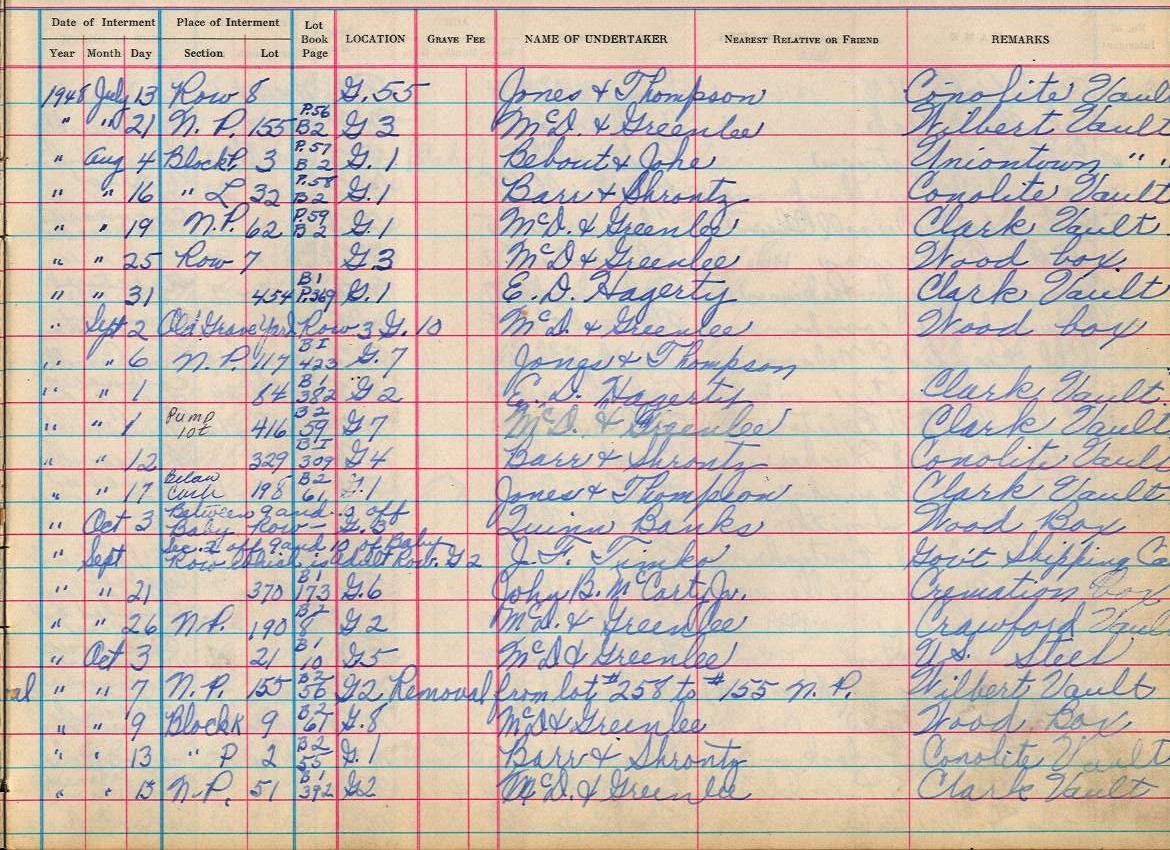 Date of Interment Place of Interment Lot Book Page LOCATION GRAVE FEE NAME OF UNDERTAKER NEAREST RELATIVE OR FRIEND REMARKS
Year Month Day Section Lot
1948 July 13 Row 8 G. 55 Jones & Thompson Conolite Vault
" " 21 N. P. 155 P.56 B2 G 3 McD. & Greenlee Wilbert Vault
" Aug 4 Block P. 3 P.57 B2 G. 1 Bebout & Yohe Uniontown " "
" " 16 " L 32 P.58 B2 G. 1 Barr & Shrontz Conolite Vault
" " 19 N.P. 62 P.59 B2 G. 1 McD. & Greenlee Clark Vault
" " 25 Row 7 G 3 McD & Greenlee Wood box
" " 31 454 B1 P.369 G. 1 E. D. Hagerty Clark Vault
" Sept 2 Old Grave Yard Row 3 G. 10 McD. & Greenlee Wood box
" " 6 N. P. 117 B I 423 G. 7 Jones & Thompson
" " 1 84 B1 382 G 2 E. D. Hagerty Clark Vault
" " 1 Pump lot 416 B2 59 G 7 McD. & Greenlee Clark Vault
" " 12 329 B I 309 G 4 Barr & Shrontz Conolite Vault
" " 17 Below Curb 198 B2 61 G. 1 Jones & Thompson Clark Vault
" Oct 3 Between 9 and off Baby Row - G. B Quinn Banks Wood Box
" Sept Sec. 2 off 9 and 10 of Baby Row which is Adult Row. G 2 J. F. Timko Gov't Shipping Ca
" " 21 370 B1 173 G. 6 John B. McCarty Jr. Cremation Box
" " 26 N.P. 190 B2 8 G 2 McD. & Greenlee Crawford Vault
" Oct 3 21 B1 10 G 5 McD & Greenlee U.S. Steel
al " " 7 N. P. 155 B2 56 G 2 Removal from lot #258 to #155 N. P. Wilbert Vault
" " 9 Block K 9 B2 61 G. 8 McD & Greenlee Wood Box
" " 13 " P 2 B2 55 G. 1 Barr & Shrontz Conolite Vault
" " 15 N.P. 51 B1 392 G 2 McD. & Greenlee Clark Vault